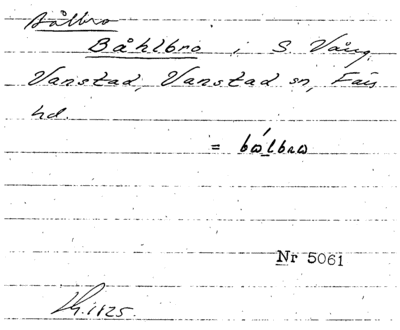 Bålbro
Båhlbro i S. Vång,
Vanstad, Vanstad sn, Färs
hd.
= bålbro
Nr 5061